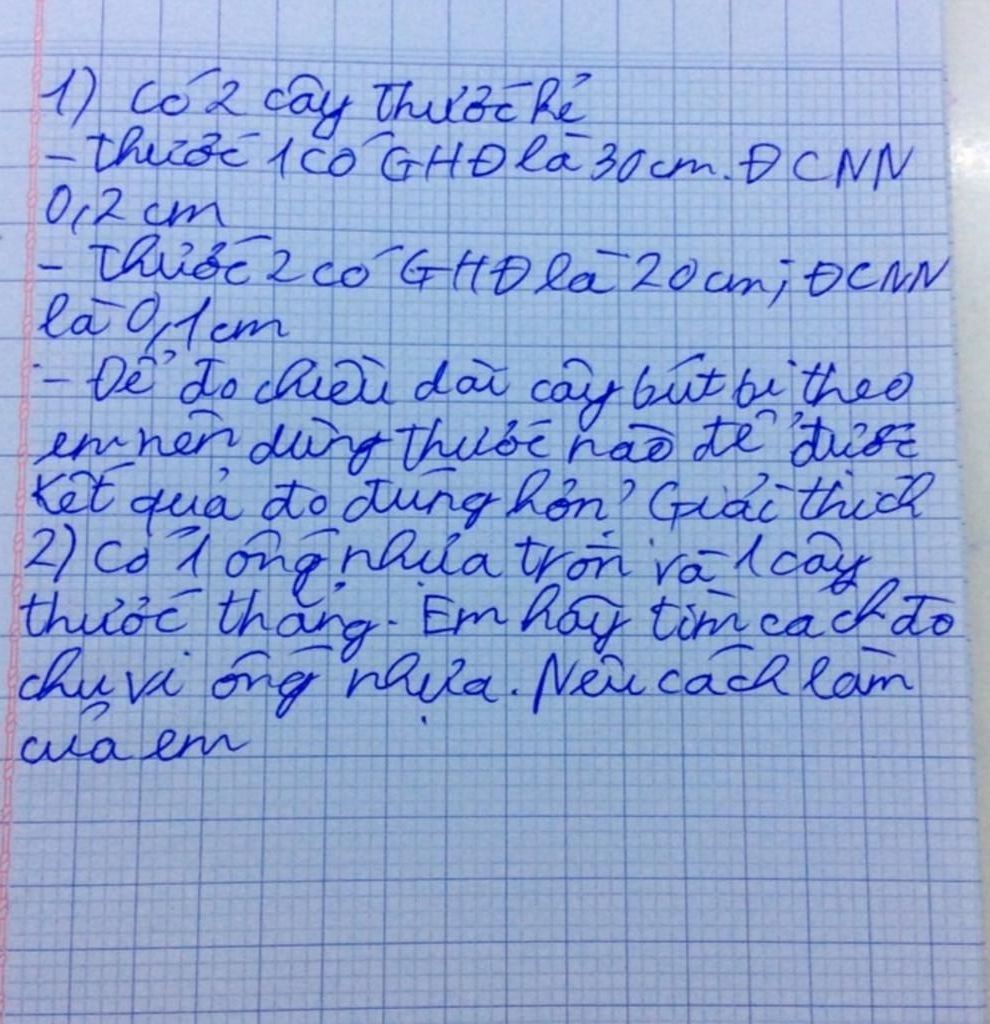 1) Có 2 cây thước kẻ
- Thước 1 có GHĐ là 30cm. ĐCNN
0,2 cm
- Thước 2 có GHĐ là 20cm; ĐCNN
là 0,1cm
- Để đo chiều dài cây bút bi theo
em nên dùng thước nào để được
kết quả đo đúng hơn? Giải thích
2) Có 1 ống nhựa tròn và 1 cây
thước thẳng. Em hãy tìm cách đo
chu vi ống nhựa. Nêu cách làm
của em